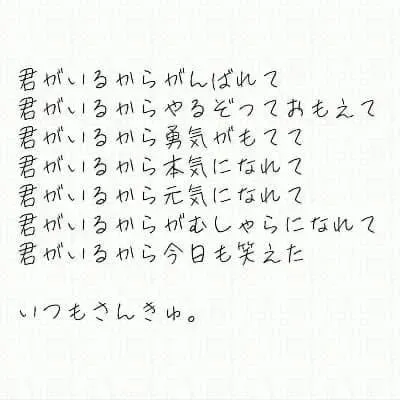 君がいるからがんばれて
君がいるからやるぞっておもえて
君がいるから勇気がもてて
君がいるから本気になれて
君がいるから元気になれて
君がいるからがむしゃらになれて
君がいるから今日も笑えた
いつもさんきゅ。